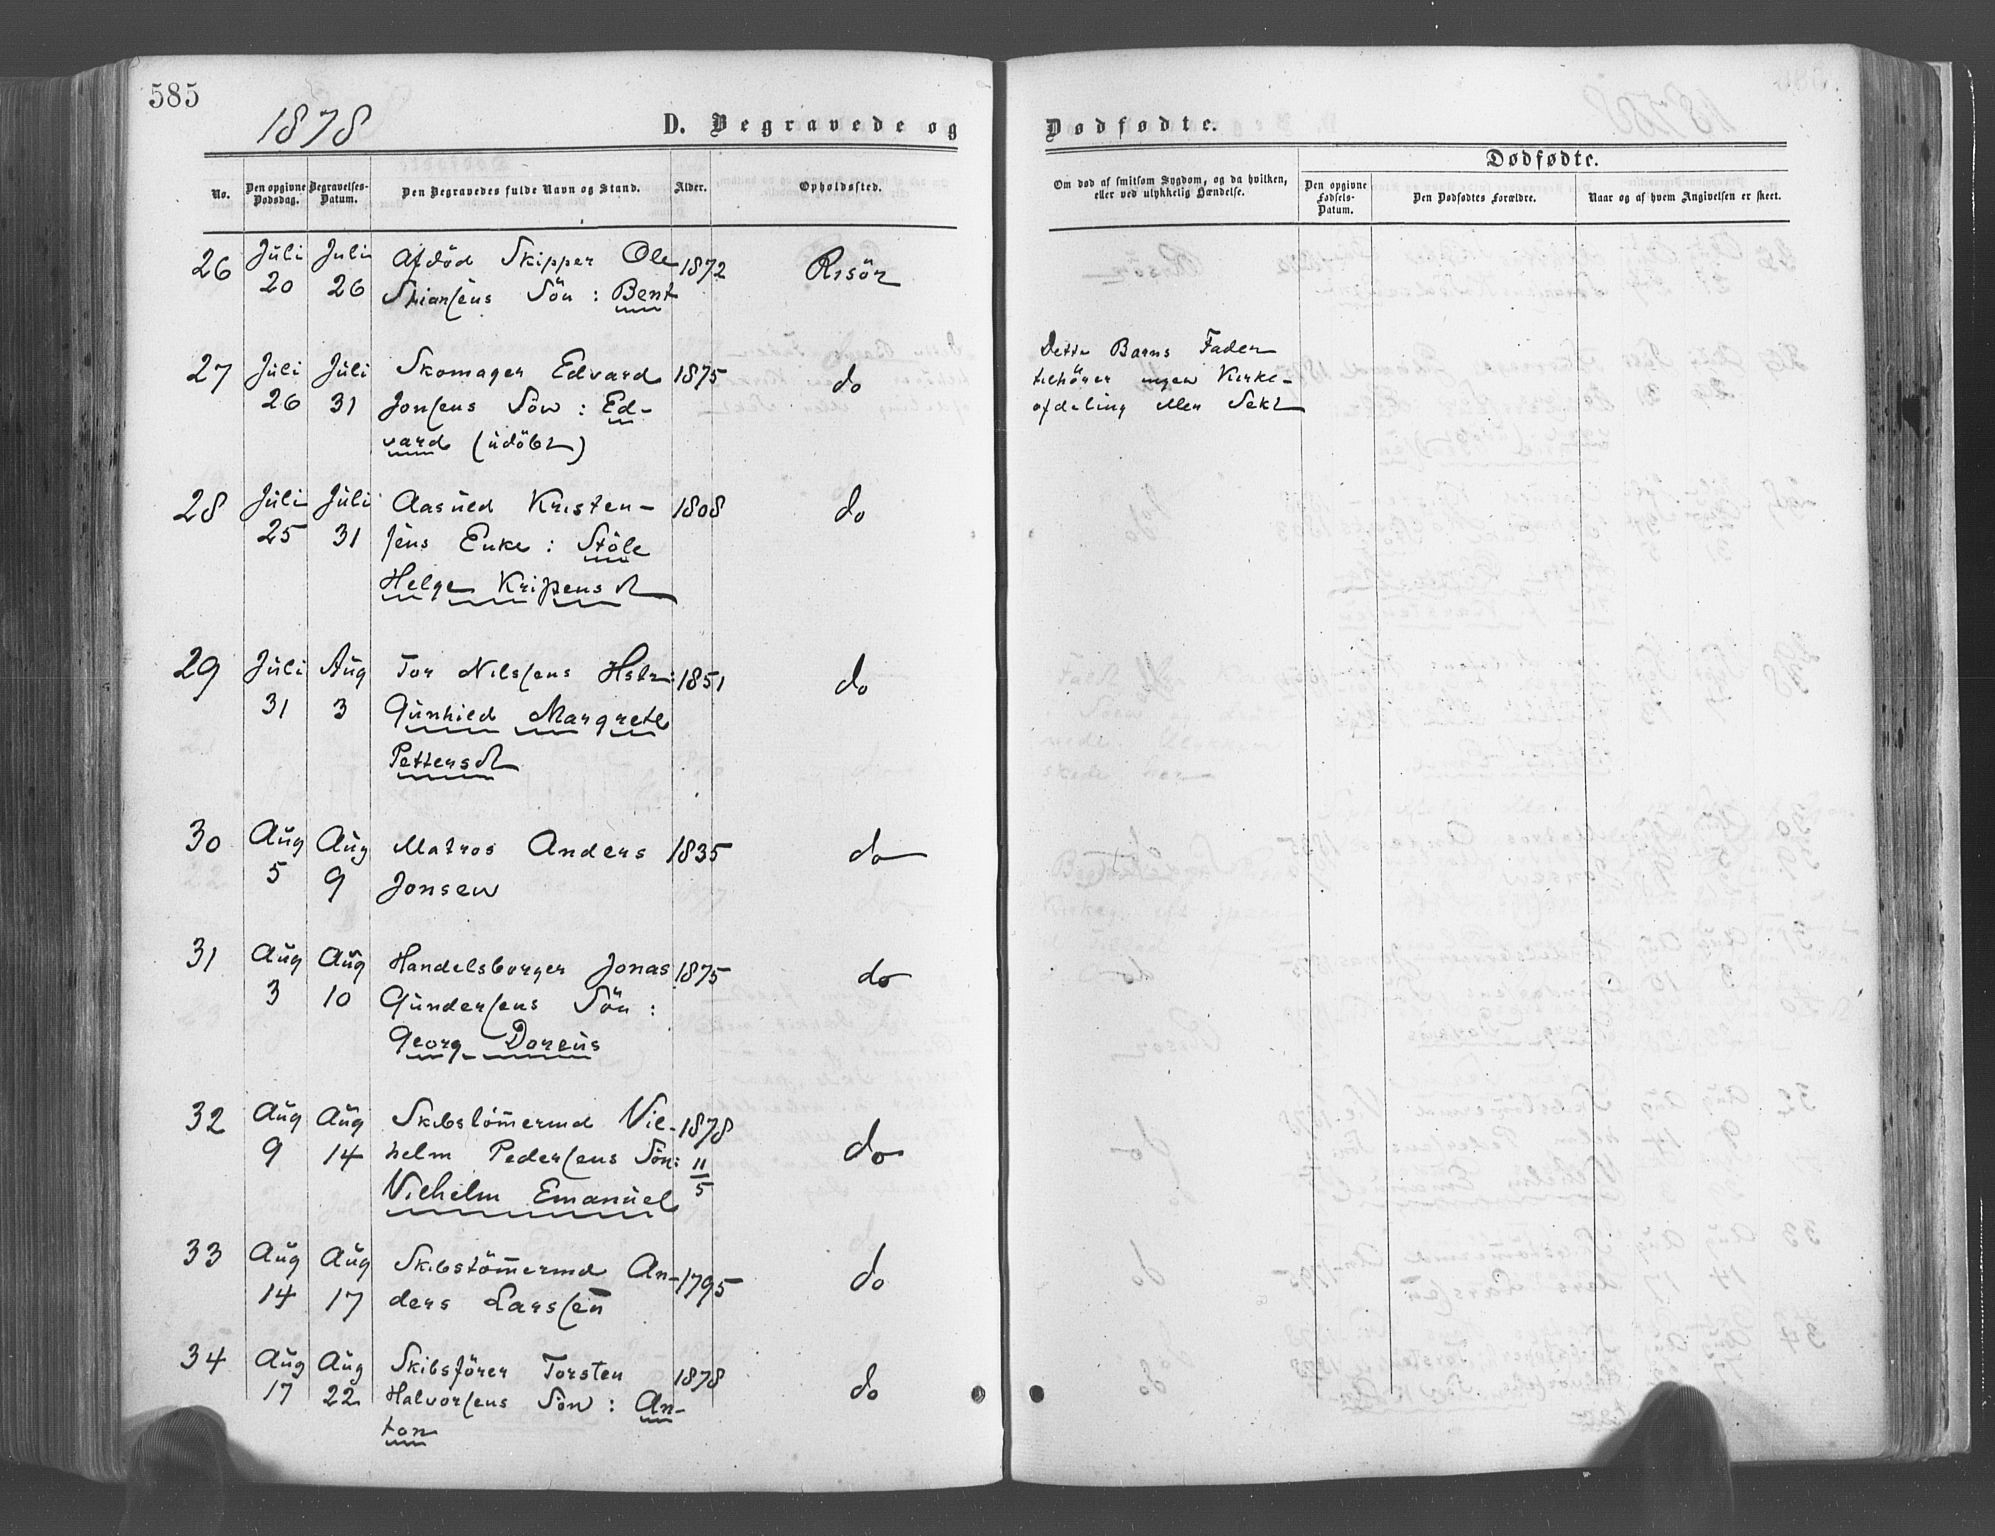 585
1878
D. Begravede og Dødfødte.
Dødfødte.
No.
Den opgivne Dødsdag.
Begravelses-Datum.
Den Begravedes fulde Navn og Stand.
Alder.
Opholdssted.
Om død af smitsom Sygdom, og da hvilken, eller ved ulykkelig Hændelse.
Den opgivne Fødsels-Datum.
Den Dødfødtes Forældre.
Naar og af hvem Angivelsen er skeet.
26 Juli Juli Afdød Skipper Ole 1872 Risör
20 26 Stiansens Sön : Bent
27 Juli Juli Skomager Edvard 1875 do
26 31 Jonsens Sön : Ed-
vard (udöbt)
Dette Barns Fader
tilhörer ingen Kirke-
afdeling eller Sekt
28 Juli Juli Aasuld Kristen- 1808 do
25 31 sens Enke : Stöle
Helge Krispensdt
29 Juli Aug Tor Nilssens Hstr: 1851 do
31 3 Gunhild Margrete
Pettersdt
30 Aug Aug Matros Anders 1835 do
5 9 Jonsen
31 Aug Aug Handelsborger Jonas 1875 do
3 10 Gundersens Sön :
Georg Doreus
32 Aug Aug Skibstömermd Vil- 1878 do
9 14 helm Pedersens Sön: 11/5
Vilhelm Emanuel
33 Aug Aug Skibstömermd An- 1795 do
14 17 ders Larsen
34 Aug Aug Skibsförer Torsten 1878 do
17 22 Halvorsens Sön : An-
ton